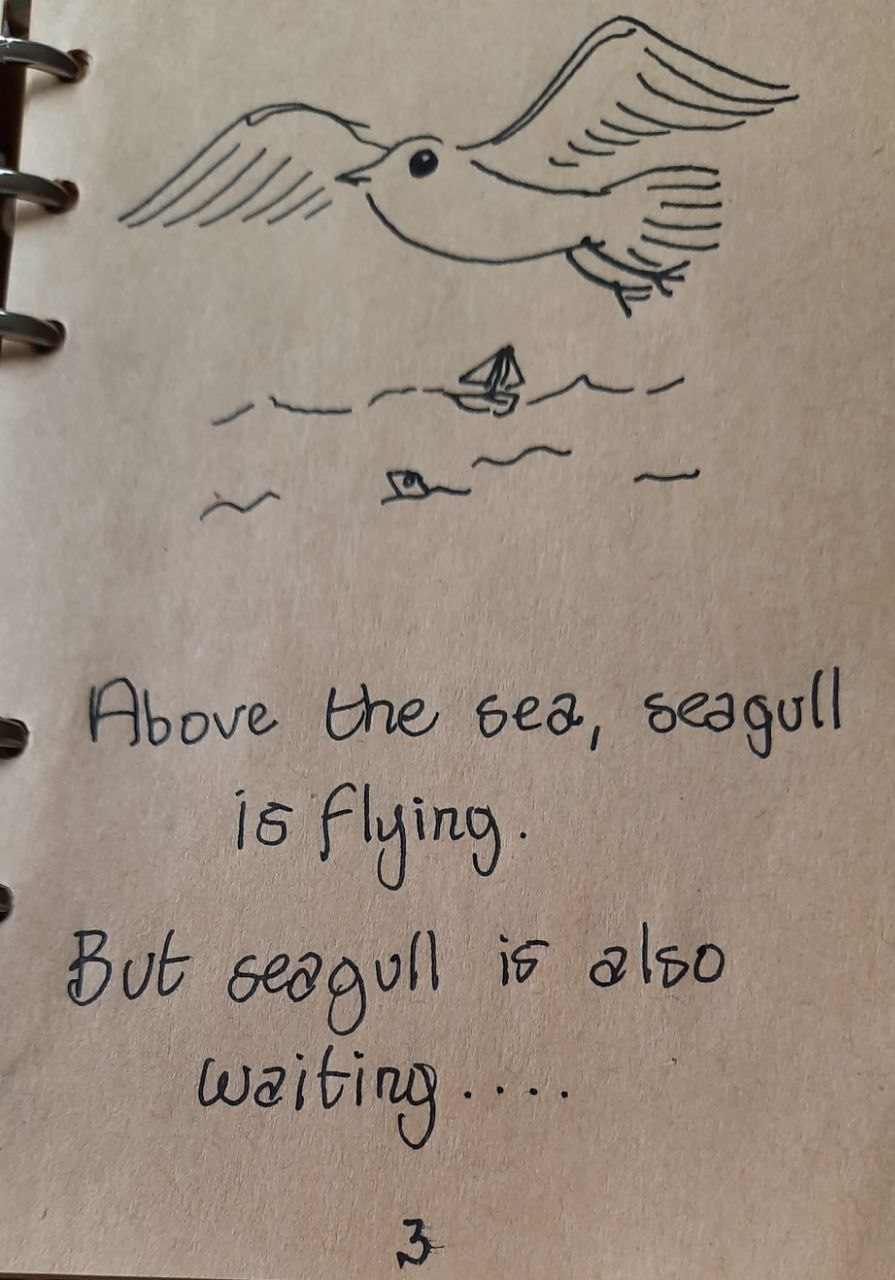 Above the sea, seagull
is flying.
But seagull is also
waiting....
3